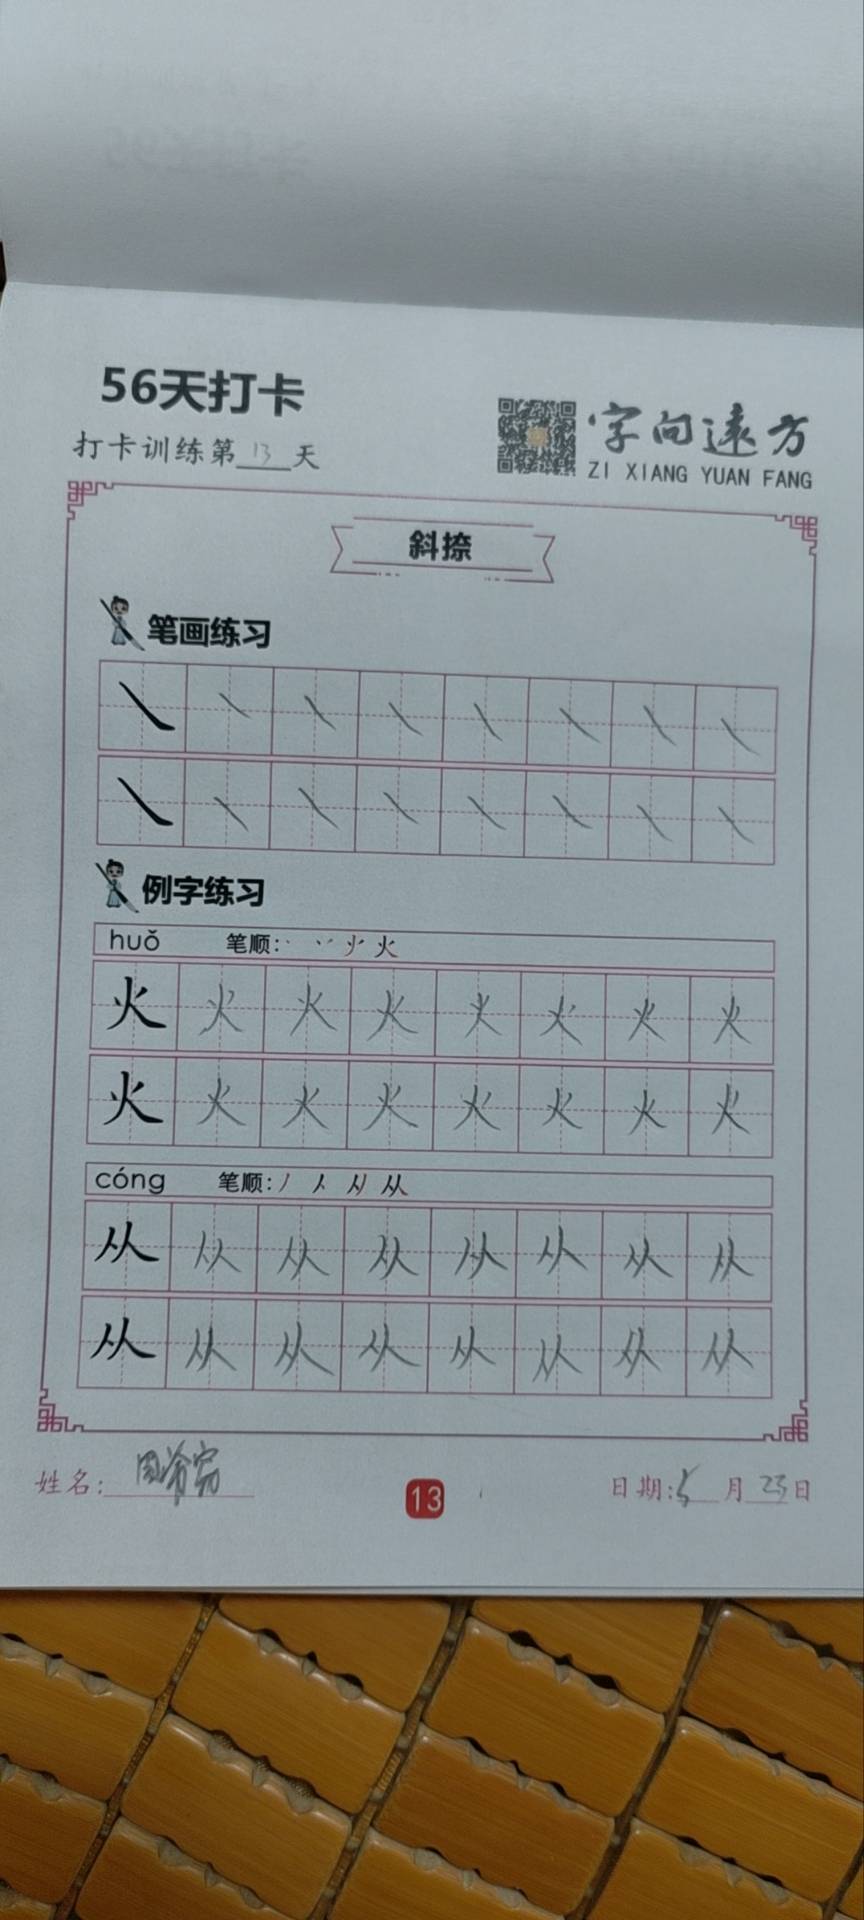 56天打卡
打卡训练第13天
字向远方
ZI XIANG YUAN FANG
斜捺
笔画练习
㇏ ㇏ ㇏ ㇏ ㇏ ㇏ ㇏ ㇏
㇏ ㇏ ㇏ ㇏ ㇏ ㇏ ㇏ ㇏
例字练习
huǒ 笔顺: 火
火 火 火 火 火 火 火 火
火 火 火 火 火 火 火 火
cóng 笔顺: 丿 人 从
从 从 从 从 从 从 从 从
从 从 从 从 从 从 从 从
姓名:
13
日期:5月23日